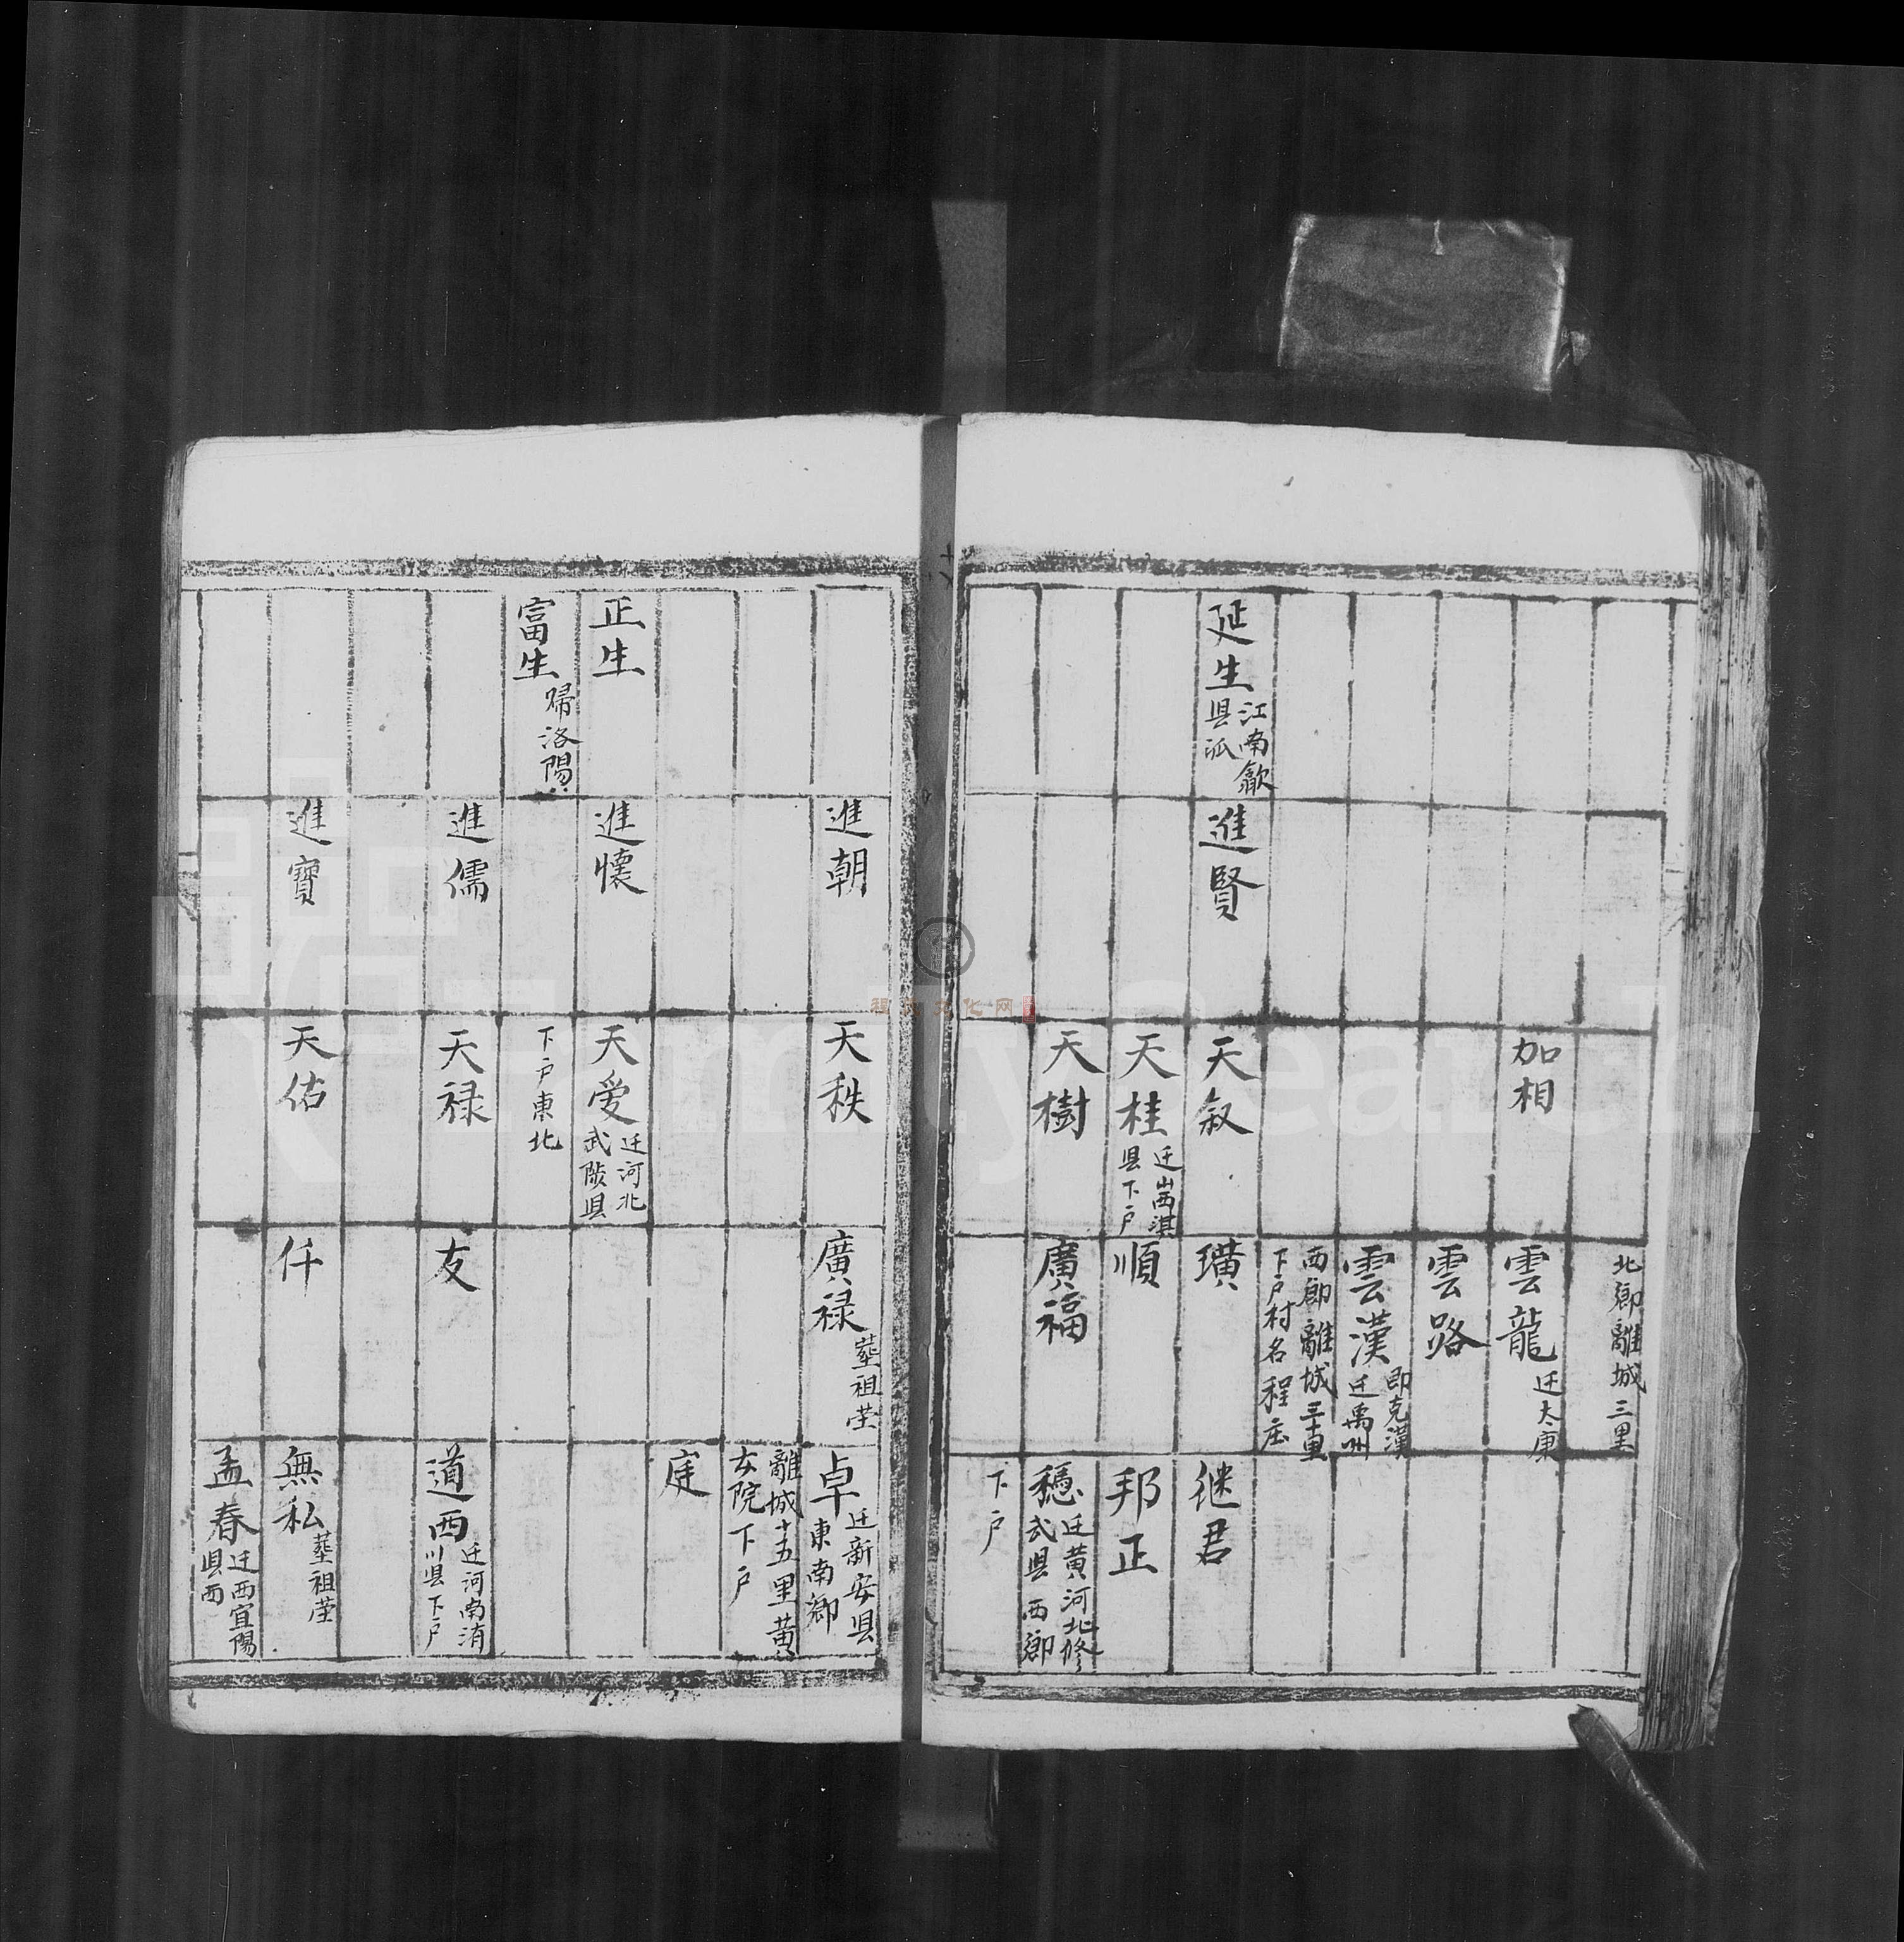 北鄉離城三里
加相
雲龍
迁太康
雲路
雲漢
即克漢
迁禹州
西鄉離城三十里
下戶村名程庄
延生
江南歙
县派
進賢
天叙
璜
继君
天桂
迁山西淇
县下戶
順
邦正
天樹
廣福
穩
迁黃河北修
武县西鄉
下戶
進朝
天秩
廣禄
塟祖茔
卓
迁新安县
東南鄉
離城十五里黃
玄院下戶
庭
正生
進懷
天爱
迁河北
武陟县
富生
歸洛陽
下戶東北
進儒
天禄
友
道西
迁河南淯
川县下戶
進寶
天佑
仟
無私
塟祖茔
孟春
迁西宜陽
县西
程氏文化网